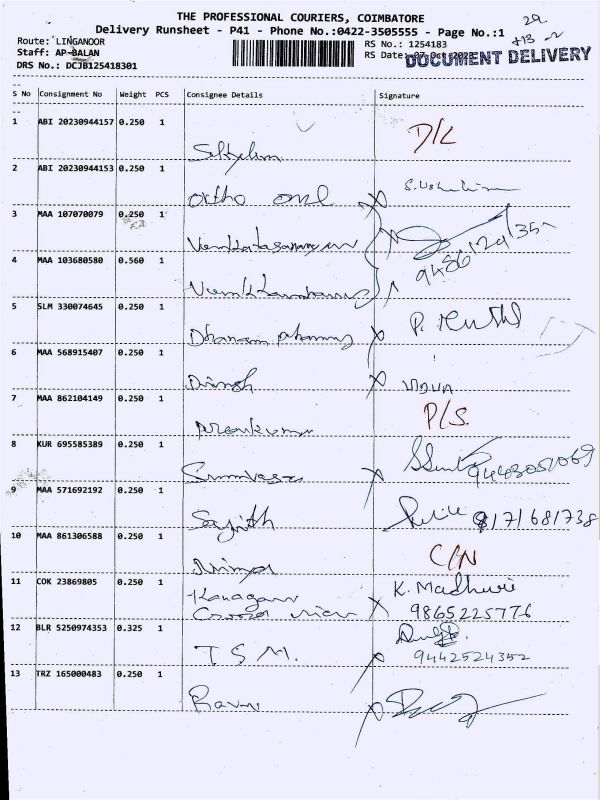 THE PROFESSIONAL COURIERS, COIMBATORE
29
Delivery Runsheet - P41 - Phone No.:0422-3505555 - Page No.:1
+13 -2
Route: LINGANOOR
RS No.: 1254183
Staff: AP-BALAN
RS Date: 07-Oct-2023
DOCUMENT DELIVERY
DRS No.: DCJB125418301
S No Consignment No Weight PCS Consignee Details Signature
1 ABI 20230944157 0.250 1 D/L
2 ABI 20230944153 0.250 1
Ortho one
3 MAA 107070079 0.250 1
4 MAA 103680580 0.560 1
5 SLM 330074645 0.250 1
Dhanam
6 MAA 568915407 0.250 1
Dinesh
7 MAA 862104149 0.250 1 P/S.
Premkumar
8 KUR 695585389 0.250 1 9443052069
Srinivasa
9 MAA 571692192 0.250 1
Sajith 8171681738
10 MAA 861306588 0.250 1 C/N
11 COK 23869805 0.250 1 K. Madhuri
9865225776
12 BLR 5250974353 0.325 1
T S M. 9442524352
13 TRZ 165000483 0.250 1
Ravi